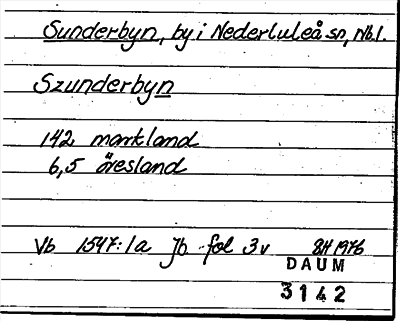 Sunderbyn, by i Nederluleå sn, Nbl.
Szunderbyn
142 markland
6,5 öresland
Vb 1547:1a Jb fol 3v 8H 1976
DAUM
3142